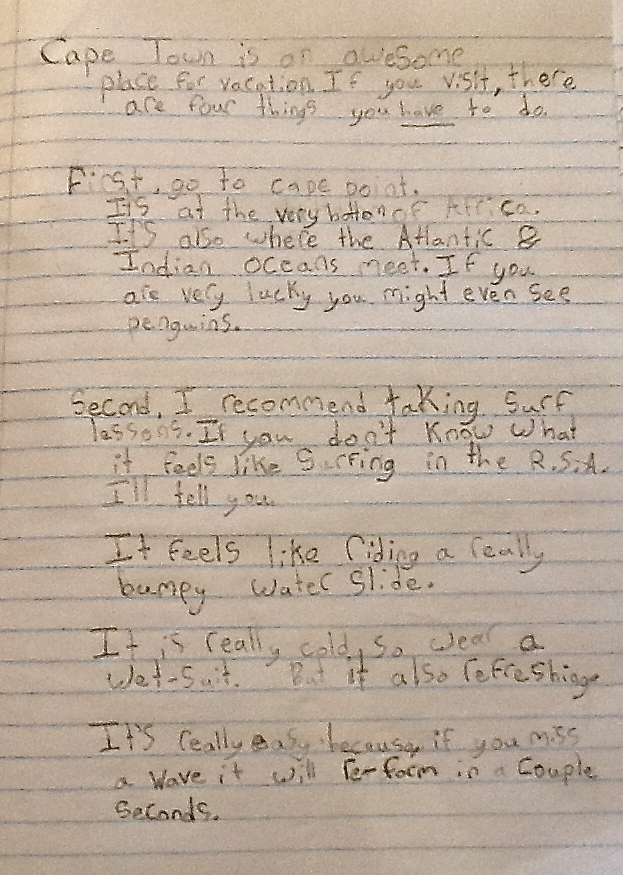 Cape Town is an awesome
place for vacation. If you visit, there
are four things you have to do.
First, go to cape point.
It's at the very botton of Africa.
It's also where the Atlantic &
Indian Oceans meet. If you
are very lucky you might even see
penguins.
Second, I recommend taking surf
lessons. If you don't know what
it feels like Surfing in the R.S.A.
I'll tell you.
It feels like riding a really
bumpy water slide.
It is really cold, so wear a
wet-suit. But it also refreshing
It's really easy because, if you miss
a wave it will re-form in a couple
seconds.